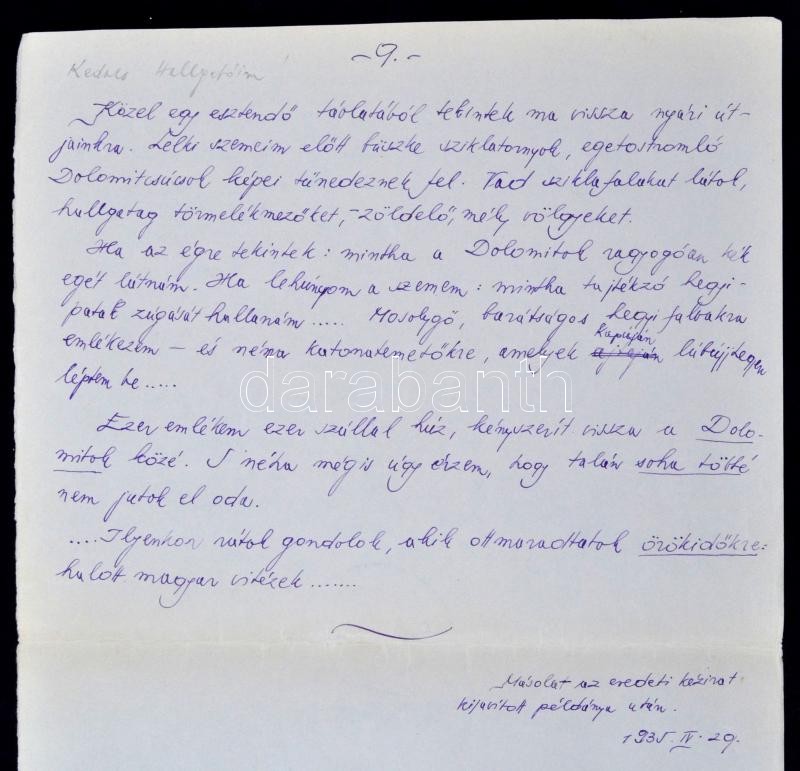 -9.-
Kedves Hallgatóim!
Közel egy esztendő távlatából tekintek ma vissza nyári út-
jainkra. Lelki szemeim előtt büszke sziklatornyok, egetostromló
Dolomitcsúcsok képei tünedeznek fel. Vad sziklafalakat látok,
hallgatag törmelékmezőket, - zöldelő, mély völgyeket.
Ha az égre tekintek: mintha a Dolomitok ragyogóan kék
egét látnám. Ha lehúnyom a szemem: mintha tajtékzó hegyi-
patak zúgását hallanám ..... Mosolygó, barátságos hegyi falvakra
emlékezem - és néma katonatemetőkre, amelyek kapuján lábújjhegyen
léptem be .....
Ezer emlékem ezer szállal húz, kényszerít vissza a Dolo-
mitok közé. S néha mégis úgy érzem, hogy talán soha többé
nem jutok el oda.
.... Ilyenkor rátok gondolok, akik ottmaradtatok örökidőkre:
halott magyar vitézek .......
Másolat az eredeti kézirat
kijavított példánya után.
1935. IV. 29.
darabanth